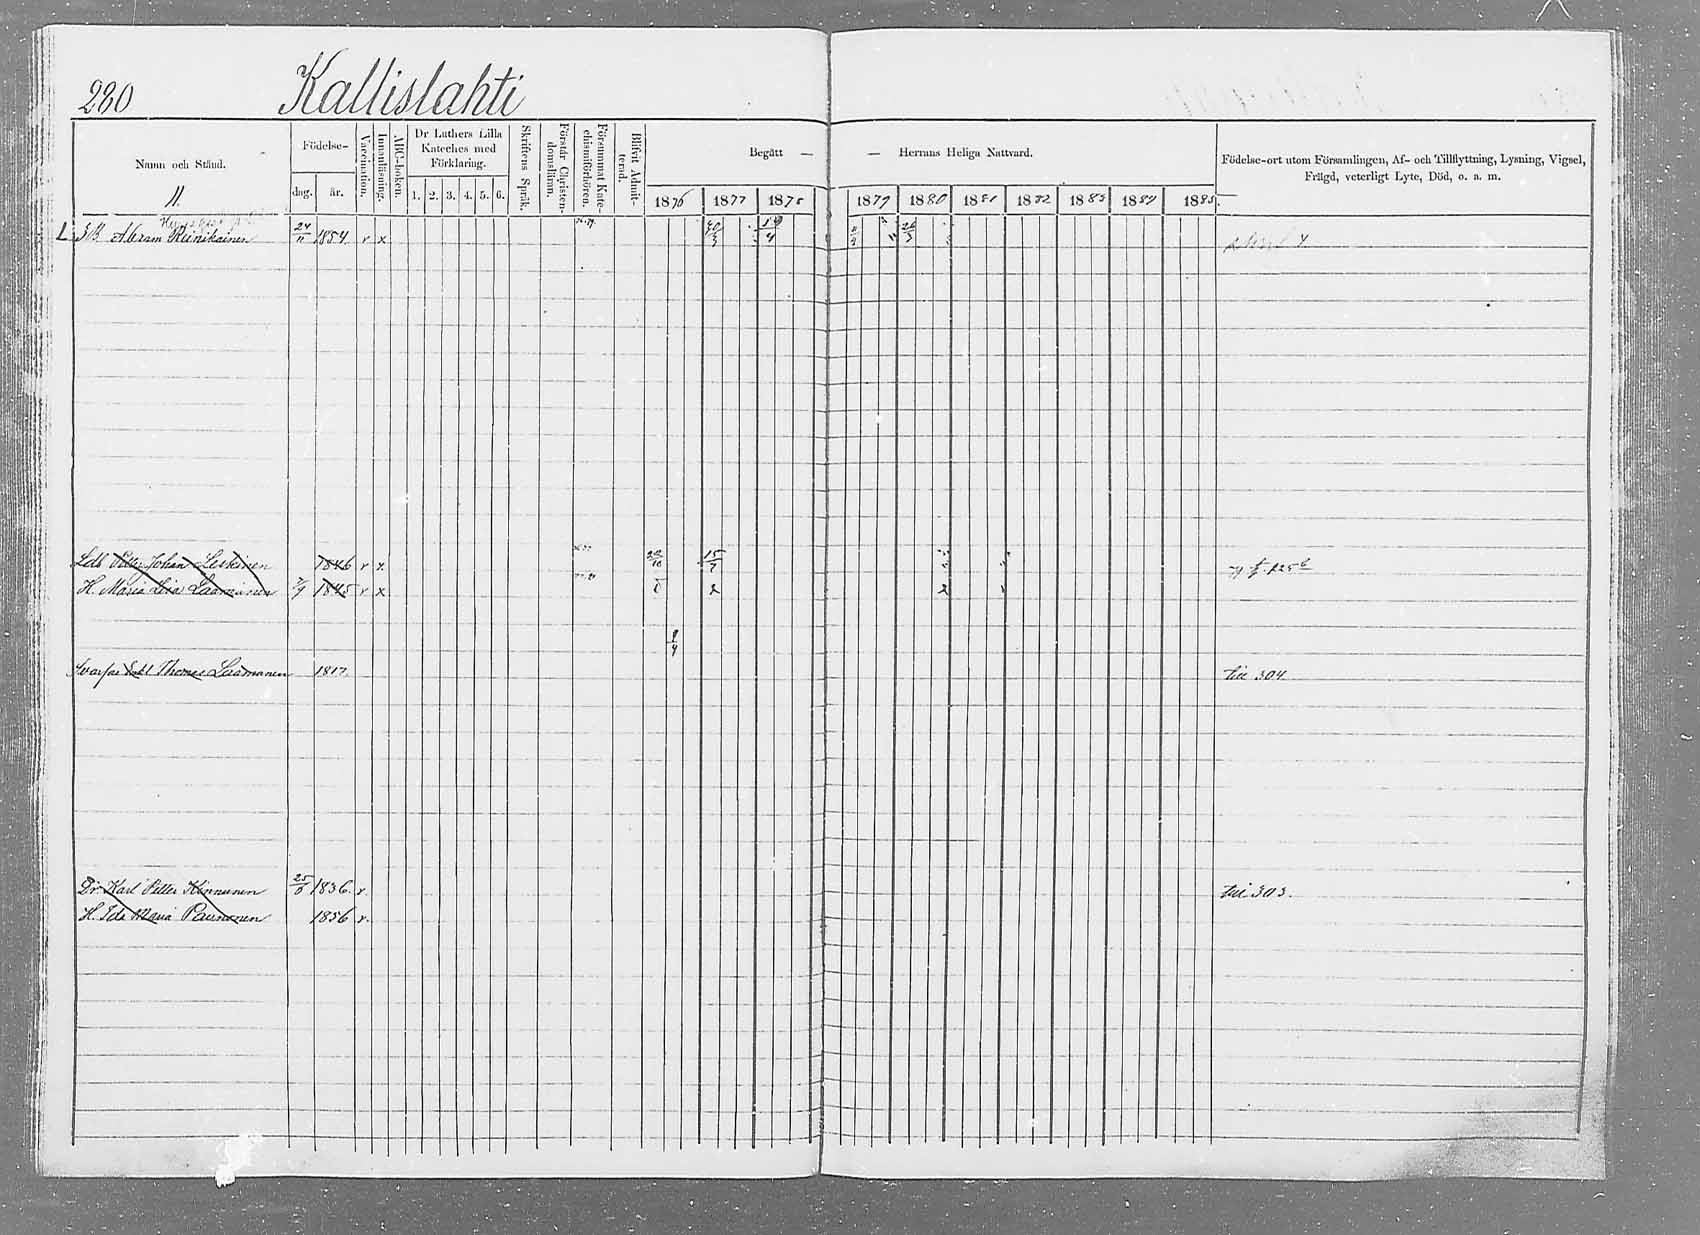 280 Kallislahti
Namn och Stånd.
11.
Födelse-
dag. år.
Vaccination.
Innanläsning.
ABC-boken.
Dr Luthers Lilla Kateches med Förklaring.
1. 2. 3. 4. 5. 6.
Skriftens Språk.
Förstår Christendomslärn.
Försummat Katechismiförhören.
Blifvit Admitterad.
Begått — — Herrans Heliga Nattvard.
1876 1877 1878 1879 1880 1881 1882 1883 1884 1885.
Födelse-ort utom Församlingen, Af- och Tillflyttning, Lysning, Vigsel,
Frägd, veterligt Lyte, Död, o. a. m.
Abram Reinikainen 24/11 1854. v x
Petter Johan Leskinen 1846 v x 15/7
H. Maria Lisa Laamanen 1845 v x 2 2
Thomas Laamanen 1817 till 304
Dr. Karl Petter Kinnunen 1836. v. till 303.
H. Ida Maria Paunonen 1856 v.